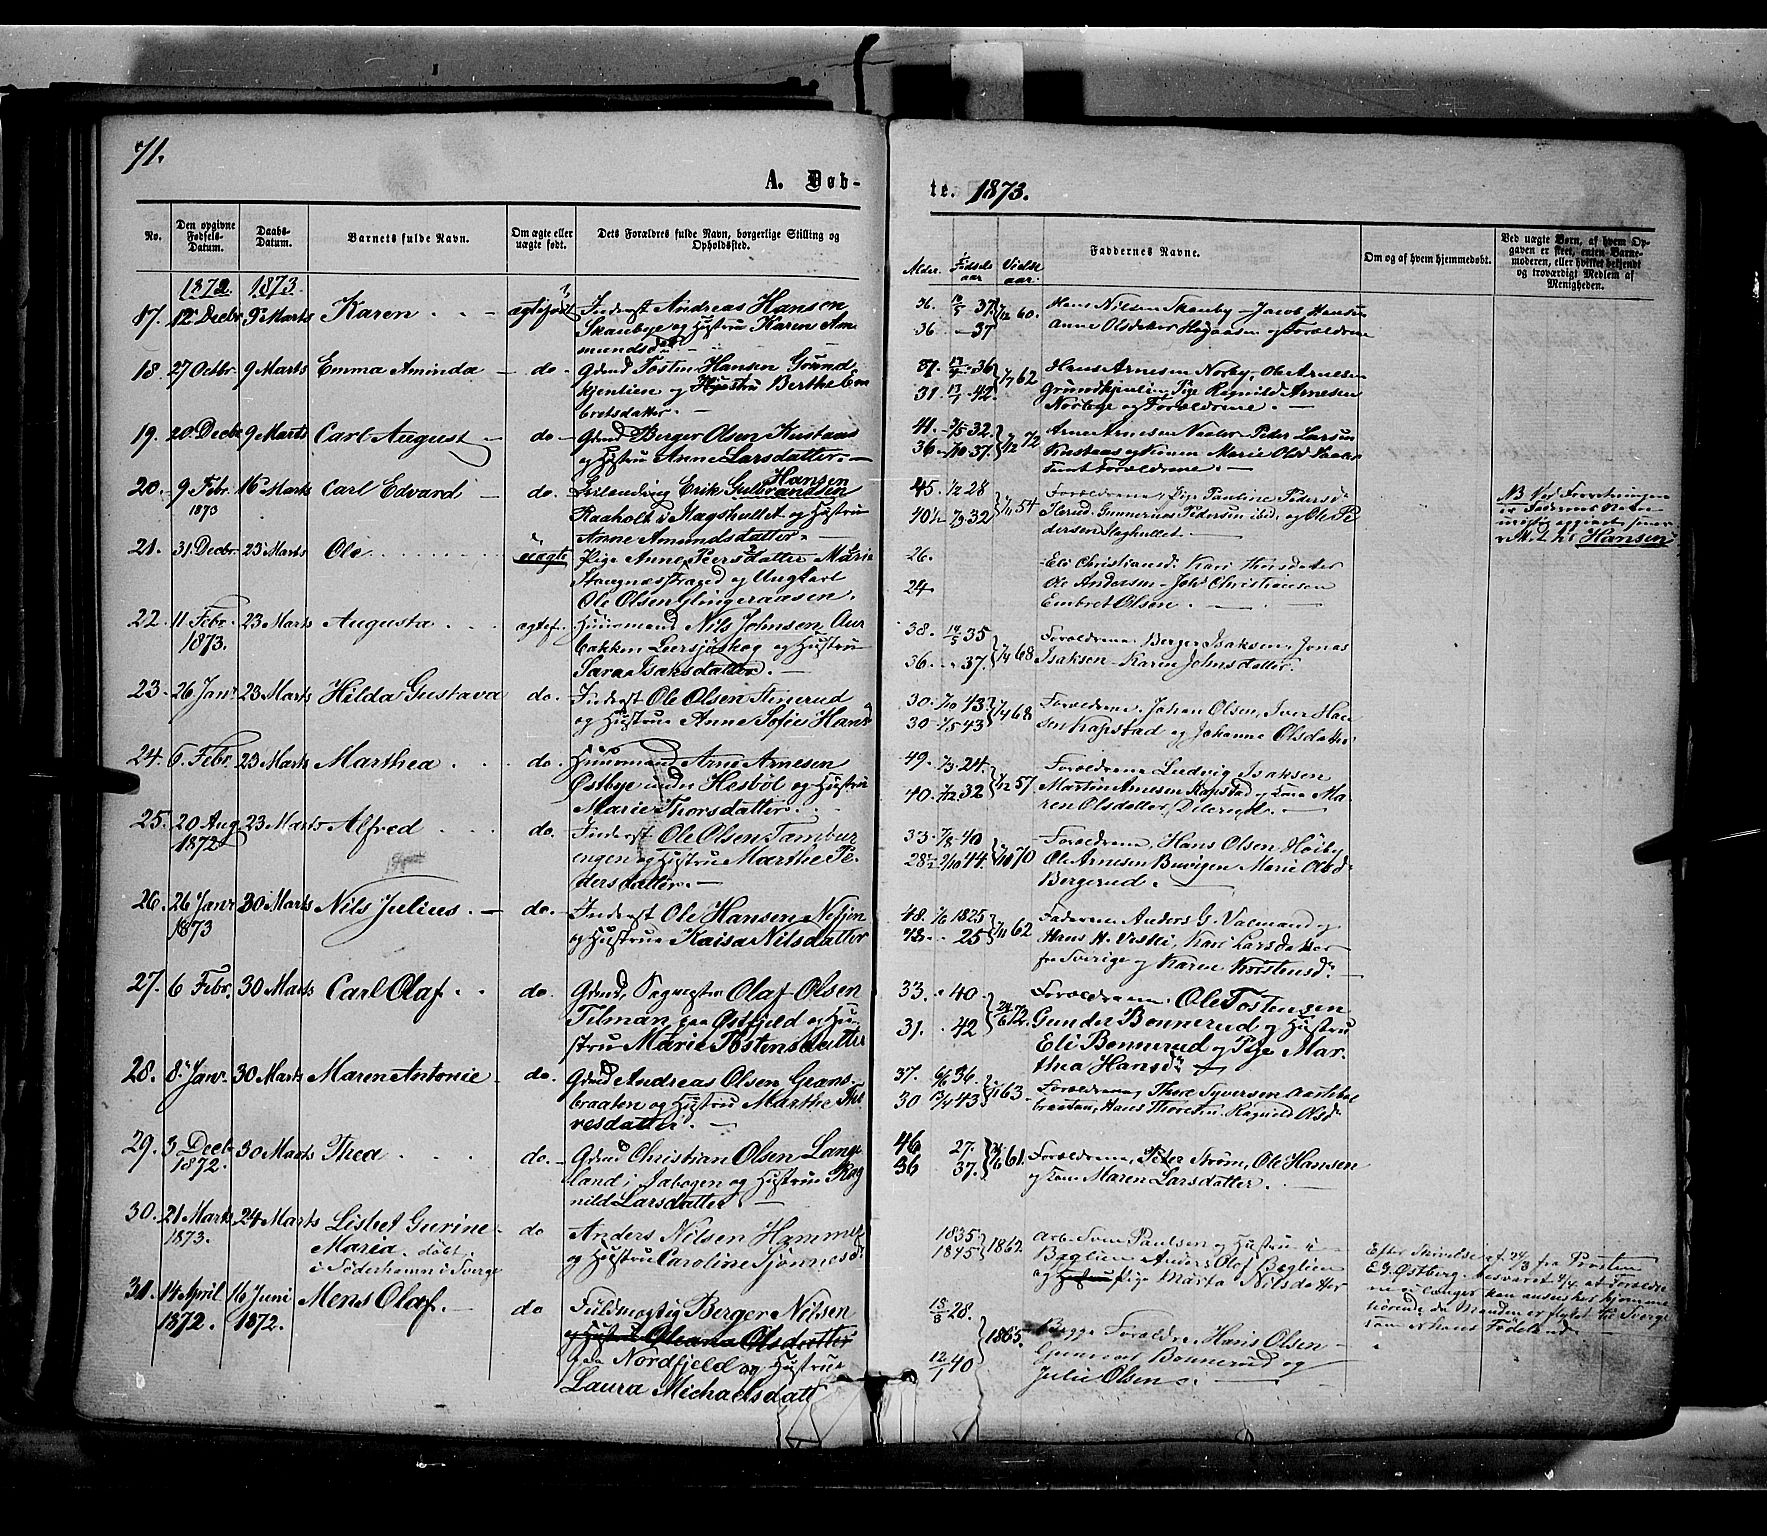 71.
A. Døb-
te. 1873.
No.
Den opgivne Fødsels-Datum.
Daabs-Datum.
Barnets fulde Navn.
Om ægte eller uægte født.
Dets Forældres fulde Navn, borgerlige Stilling og Opholdssted.
Alder.
Fødselsaar
Vielsesaar.
Faddernes Navne.
Om og af hvem hjemmedøbt.
Ved uægte Børn, af hvem Opgaven er skeet, enten Barnemoderen, eller hvilket bekjendt og troværdigt Medlem af Menigheden.
1872. 1873.
17. 12 Decbr 9 Marts Karen ægtefødt Inderst Andreas Hansen
Skaubye og Hustru Karen Amundsdatter
36. 37. 60. Hans Nilsen Skauby Jacob Hansen
36 37 Anne Olsdatter og Forældrene
18. 27 Octbr. 9 Marts Emma Aminda do. Gbrud Tosten Hansen Grund
kjenlien og Hustru Berthe Em
bretsdatter.
37. 36 62 Hans Arnesen Norby, Ole Arnesen
31. 42. Grundkjenlien, Pige Ragnild Arnesen
Norbye og Forældrene.
19. 20 Decbr 9 Marts Carl August do Gbrud Berger Olsen Kustaas
og Hustru Anne Larsdatter.
41. 32. 72 Arne Arnesen Peder Larsen
36 37. Kustaas og Konen Marie
samt Forældrene.
20. 9 Febr. 1873 16 Marts Carl Edvard do. Leilending Erik Gulbrandsen Hansen
Raaholt i Magshullet og Hustru
Anne Amundsdatter.
45. 1/2 28 54 Forældrene, Pige Pauline Pedersd.
40 1/2 32 Gunnerius Pedersen ibid. og Ole Pe
dersen Maghullet.
NB Ved Forretningen
er Faderens Navn
urigtig opgivet
Hansen
21. 31 Decbr. 23 Marts Ole uægte Pige Anne Peersdatter Marie
Stangnæs og Ungkarl
Ole Olsen Slingeraasen.
26. Eli Christiansd. Kari Thorsdatter
24 Ole Andersen Joh. Christiansen
Embret Olsen.
22. 11 Febr. 1873. 23 Marts Augusta ægtef. Huusmand Nils Johnsen Aur
bakken Leersjøskog og Hustru
Sara Isaksdatter.
38. 35 68 Forældrene, Berger Isaksen, Jonas
36. 37. Isaksen Karen Johnsdatter.
23. 26 Janr 23 Marts Hilda Gustava do. Inderst Ole Olsen Stenerud
og Hustru Anne Sofie Hansd
30. 43 68 Forældrene, Johan Olsen, Iver Han
30. 43 sen Kapstad og Johanne Olsdatter.
24. 6 Febr. 23 Marts Marthea do. Huusmand Arne Arnesen
Østbye under Hesbøl og Hustru
Marie Thorsdatter.
49. 24 57 Forældrene Ludvig Isaksen
40. 32 Martin Arnesen Kapstad og Kone Ma
ren Olsdatter
25. 20 Aug 1872 23 Marts Alfred do. Inderst Ole Olsen Tambur
engen og Hustru Marthe Pe
dersdatter.
33. 40 70 Forældrene, Hans Olsen Høiby
28 1/2 44. Ole Arnesen Buvigen Marie Olsd.
Bergerud.
26. 26 Janr 1873 30 Marts Nils Julius. do. Inderst Ole Hansen Nesjen
og Hustru Kaisa Nilsdatter
48. 1825 62 Faderen Anders G. Valmand og
25 Hans H. Viski, Kari Larsdatter
fra Sverige og Karen Kristensd.
27. 6 Febr. 30 Marts Carl Olaf. do. Gbrud, Sagmester Olaf Olsen
Tilman, paa Østfjeld og Hu
stru Marie Tostensdatter
33. 40 72. Forældrene. Ole Tostensen
31. 42 Gunder Bonnerud og Hustru
Eli Bonnerud og Pige Mar
thea Hansd.
28. 8 Janr. 30 Marts Maren Antonie do. Gbrud Andreas Olsen Grans
braaten og Hustru Marthe Tho
resdatter.
37. 36. 63. Forældrene, Thore Syversen Aastebøl
30 43 braaten, Hans Thoresen Ragnild Olsd.
29. 3 Decb 1872. 30 Marts Thea do. Gbrud Christian Olsen Lange
land i og Hustru Rag
nild Larsdatter
46 27. 61. Forældrene, Peder Strøm, Ole Hansen
36 37. og Kone Maren Larsdatter.
30. 21 Marts 1873. 24 Marts Lisbet Gurine
Maria. døbt
i Söderhamn i Sverge
do Anders Nilsen Hammer
og Hustru Caroline Sjønnesd.
1835 1862 Arb. Sven Paulsen og Hustru i
1845 Beglien Anders Olof Beglien
og Hustru Pige Marta Nilsdatter
Efter Skrivelse af 24/3 fra Prosten
E. G. Østberg besvaret at Foræld
ne ei længer kan ansees hjemme
hørende da Manden er flytet til Sverge
som er hans Fødeland.
31. 14 April 1872. 16 Juni 1872. Mens Olaf. do Fuldmægtig Berger Nilsen
og Hustru Oleana Olsdatter
paa Nordfjeld og Hustrue
Laura Michaelsdatt
28. 1865. Begge Forældre, Hans Olsen
12/1 40 Bonnerud og
Julie Olsen.